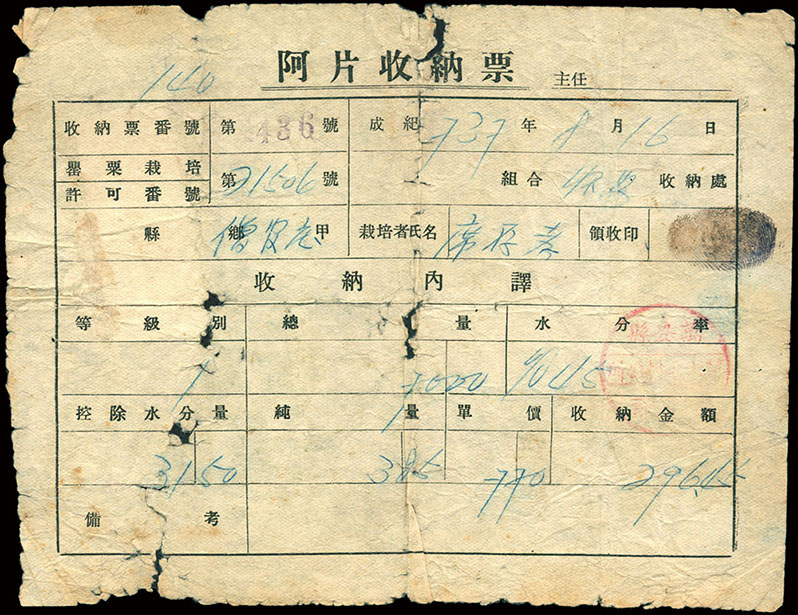 阿片收納票 主任
140
收納票番號 第 436 號 成紀 737 年 8 月 16 日
罌粟栽培
許可番號 第 21506 號 組合 收納處
縣 鄉 甲 栽培者氏名 席存孝 領收印
收納內譯
等級別 總量 水分率
7020 9045
控除水分量 純量 單價 收納金額
3150 385 770 296.45
備考